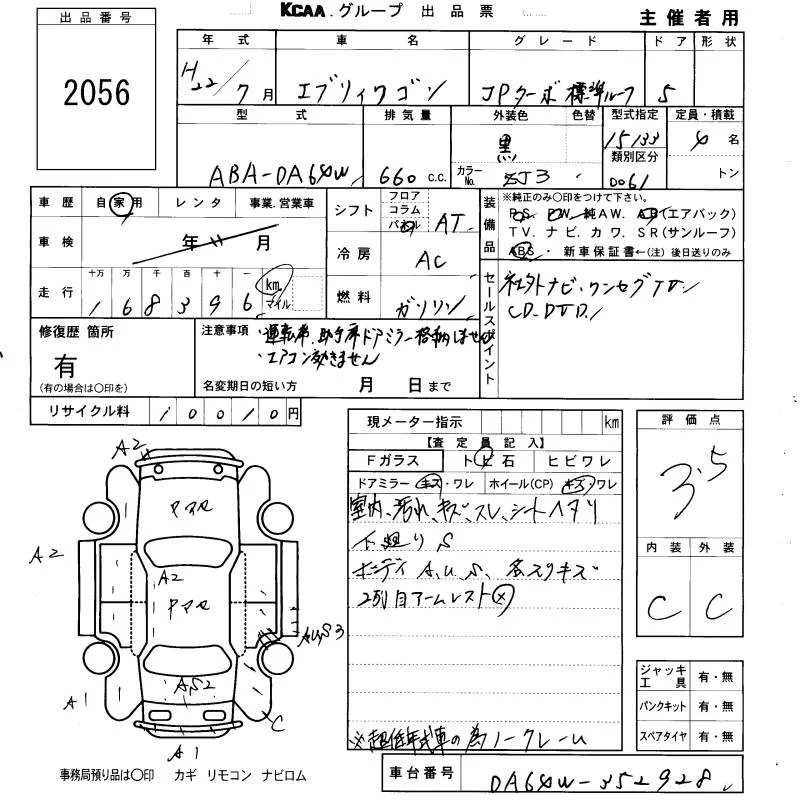 KCAA.グループ 出品票
主催者用
出品番号
2056
年式 車名 グレード ドア 形状
H22/7月 エブリィワゴン JPターボ 標準ルーフ 5
型式 排気量 外装色 色替 型式指定 定員・積載
ABA-DA64W 660 c.c. 黒 15133 4名
カラーNo. ZJ3 類別区分 0061 トン
車歴 自家用 レンタ 事業.営業車
車検 年 月
走行 十万 万 千 百 十 一 km マイル
1 6 8 3 9 6
シフト フロア コラム パネル AT
冷房 AC
燃料 ガソリン
装備品
※純正のみ○印をつけて下さい。
P.S. P.W. 純AW. AB(エアバック)
TV. ナビ. カワ. SR(サンルーフ)
ABS・新車保証書←(注) 後日送りのみ
セールスポイント
社外ナビ.ワンセグTV
CD.DVD
修復歴 箇所
有
(有の場合は○印を)
注意事項 ・運転席、助手席ドアミラー格納しません
・エアコン効きません
名変期日の短い方 月 日まで
リサイクル料 10010円
現メーター指示 km
【査定員記入】
Fガラス トビ石 ヒビワレ
ドアミラー キズ・ワレ ホイール(CP) キズ/ワレ
室内、汚れ、キズ、スレ、シートヘタリ
下廻りS
ボディ A.U.S、多スリキズ
2列目アームレスト×
※超低年式車の為ノークレーム
評価点
3.5
内装 外装
C C
ジャッキ工具 有・無
パンクキット 有・無
スペアタイヤ 有・無
A2
A2
A2
A,U,S3
A,S2
A1
C
A1
事務局預り品は○印 カギ リモコン ナビロム
車台番号 DA64W-352928